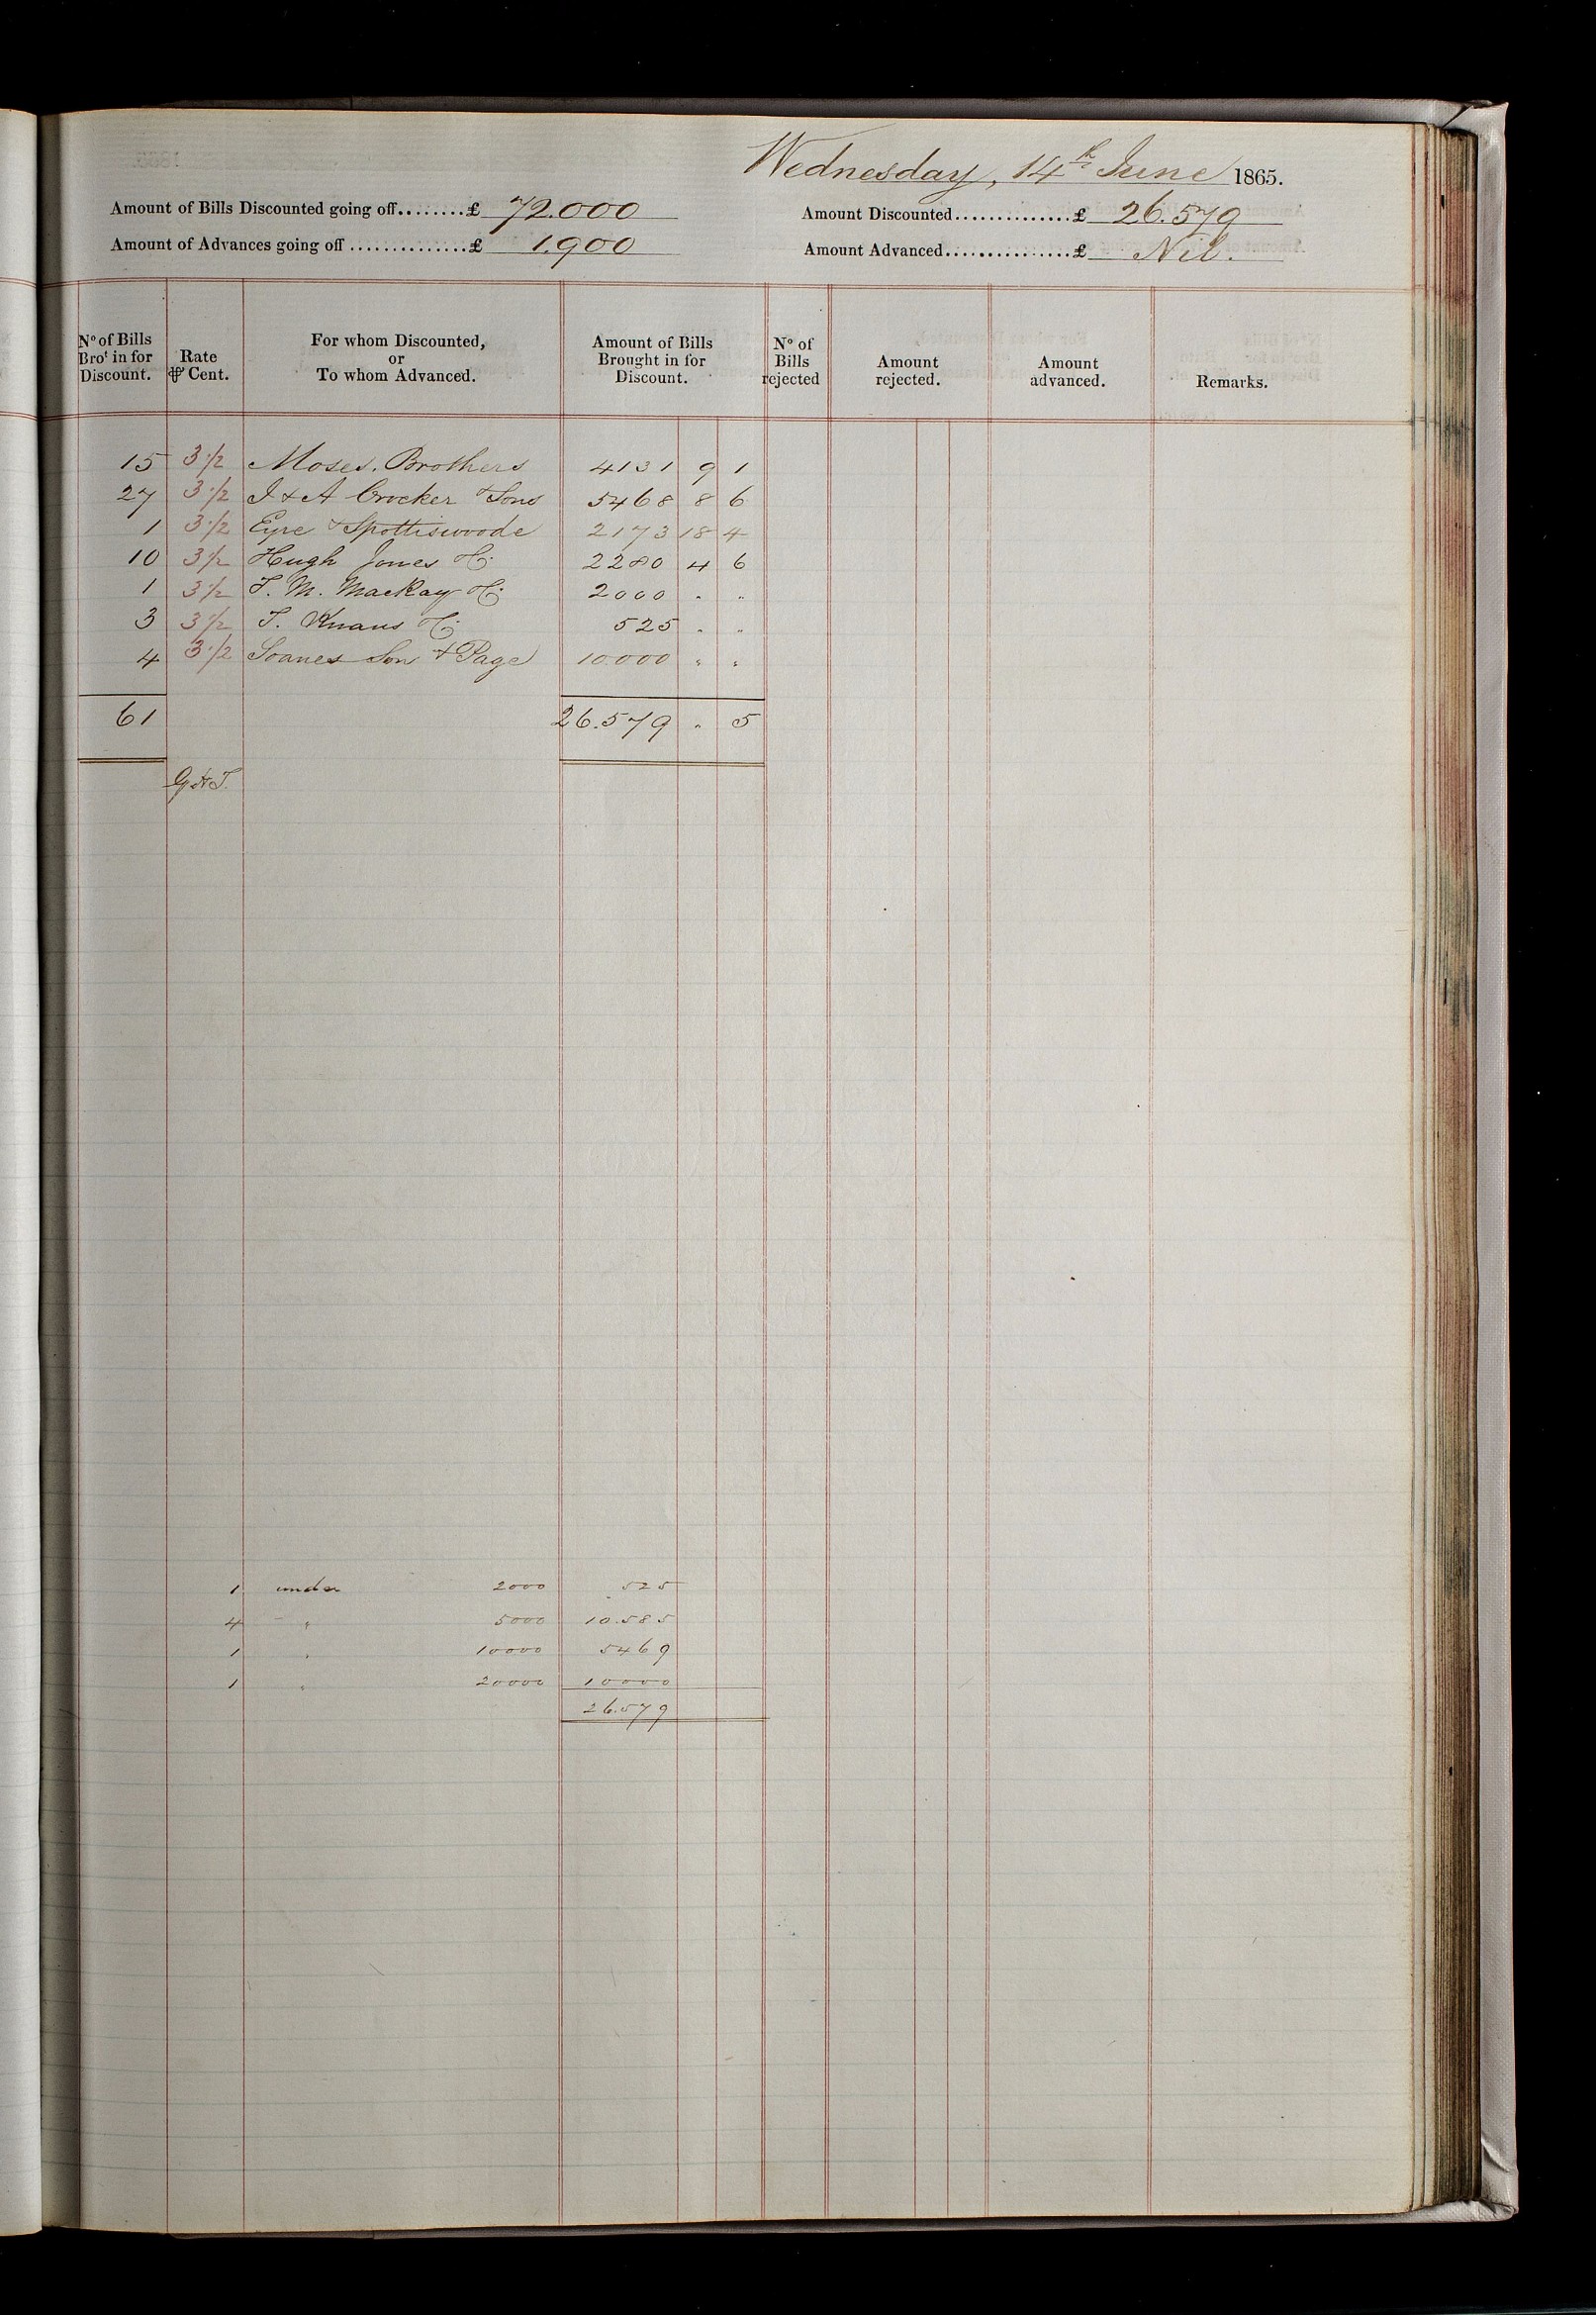 Wednesday, 14th June 1865.
Amount of Bills Discounted going off........£ 72.000
Amount Discounted..............£ 26.579
Amount of Advances going off..............£ 1.900
Amount Advanced...............£ Nil.
No of Bills Brot in for Discount.
Rate ⅌ Cent.
For whom Discounted, or To whom Advanced.
Amount of Bills Brought in for Discount.
No of Bills rejected
Amount rejected.
Amount advanced.
Remarks.
15 3 1/2 Moses. Brothers 4131 9 1
27 3 1/2 I & A Crocker & Sons 5468 8 6
1 3 1/2 Eyre & Spottiswoode 2173 18 4
10 3 1/2 Hugh Jones & Co 2280 4 6
1 3 1/2 T. M. MacKay & Co 2000 " "
3 3 1/2 T. Knaus & Co 525 " "
4 3 1/2 Soanes Son & Page 10.000 " "
61 26.579 " 5
1 under 2000 525
4 " 5000 10.585
1 " 10000 5469
1 " 20000 10000
26.579